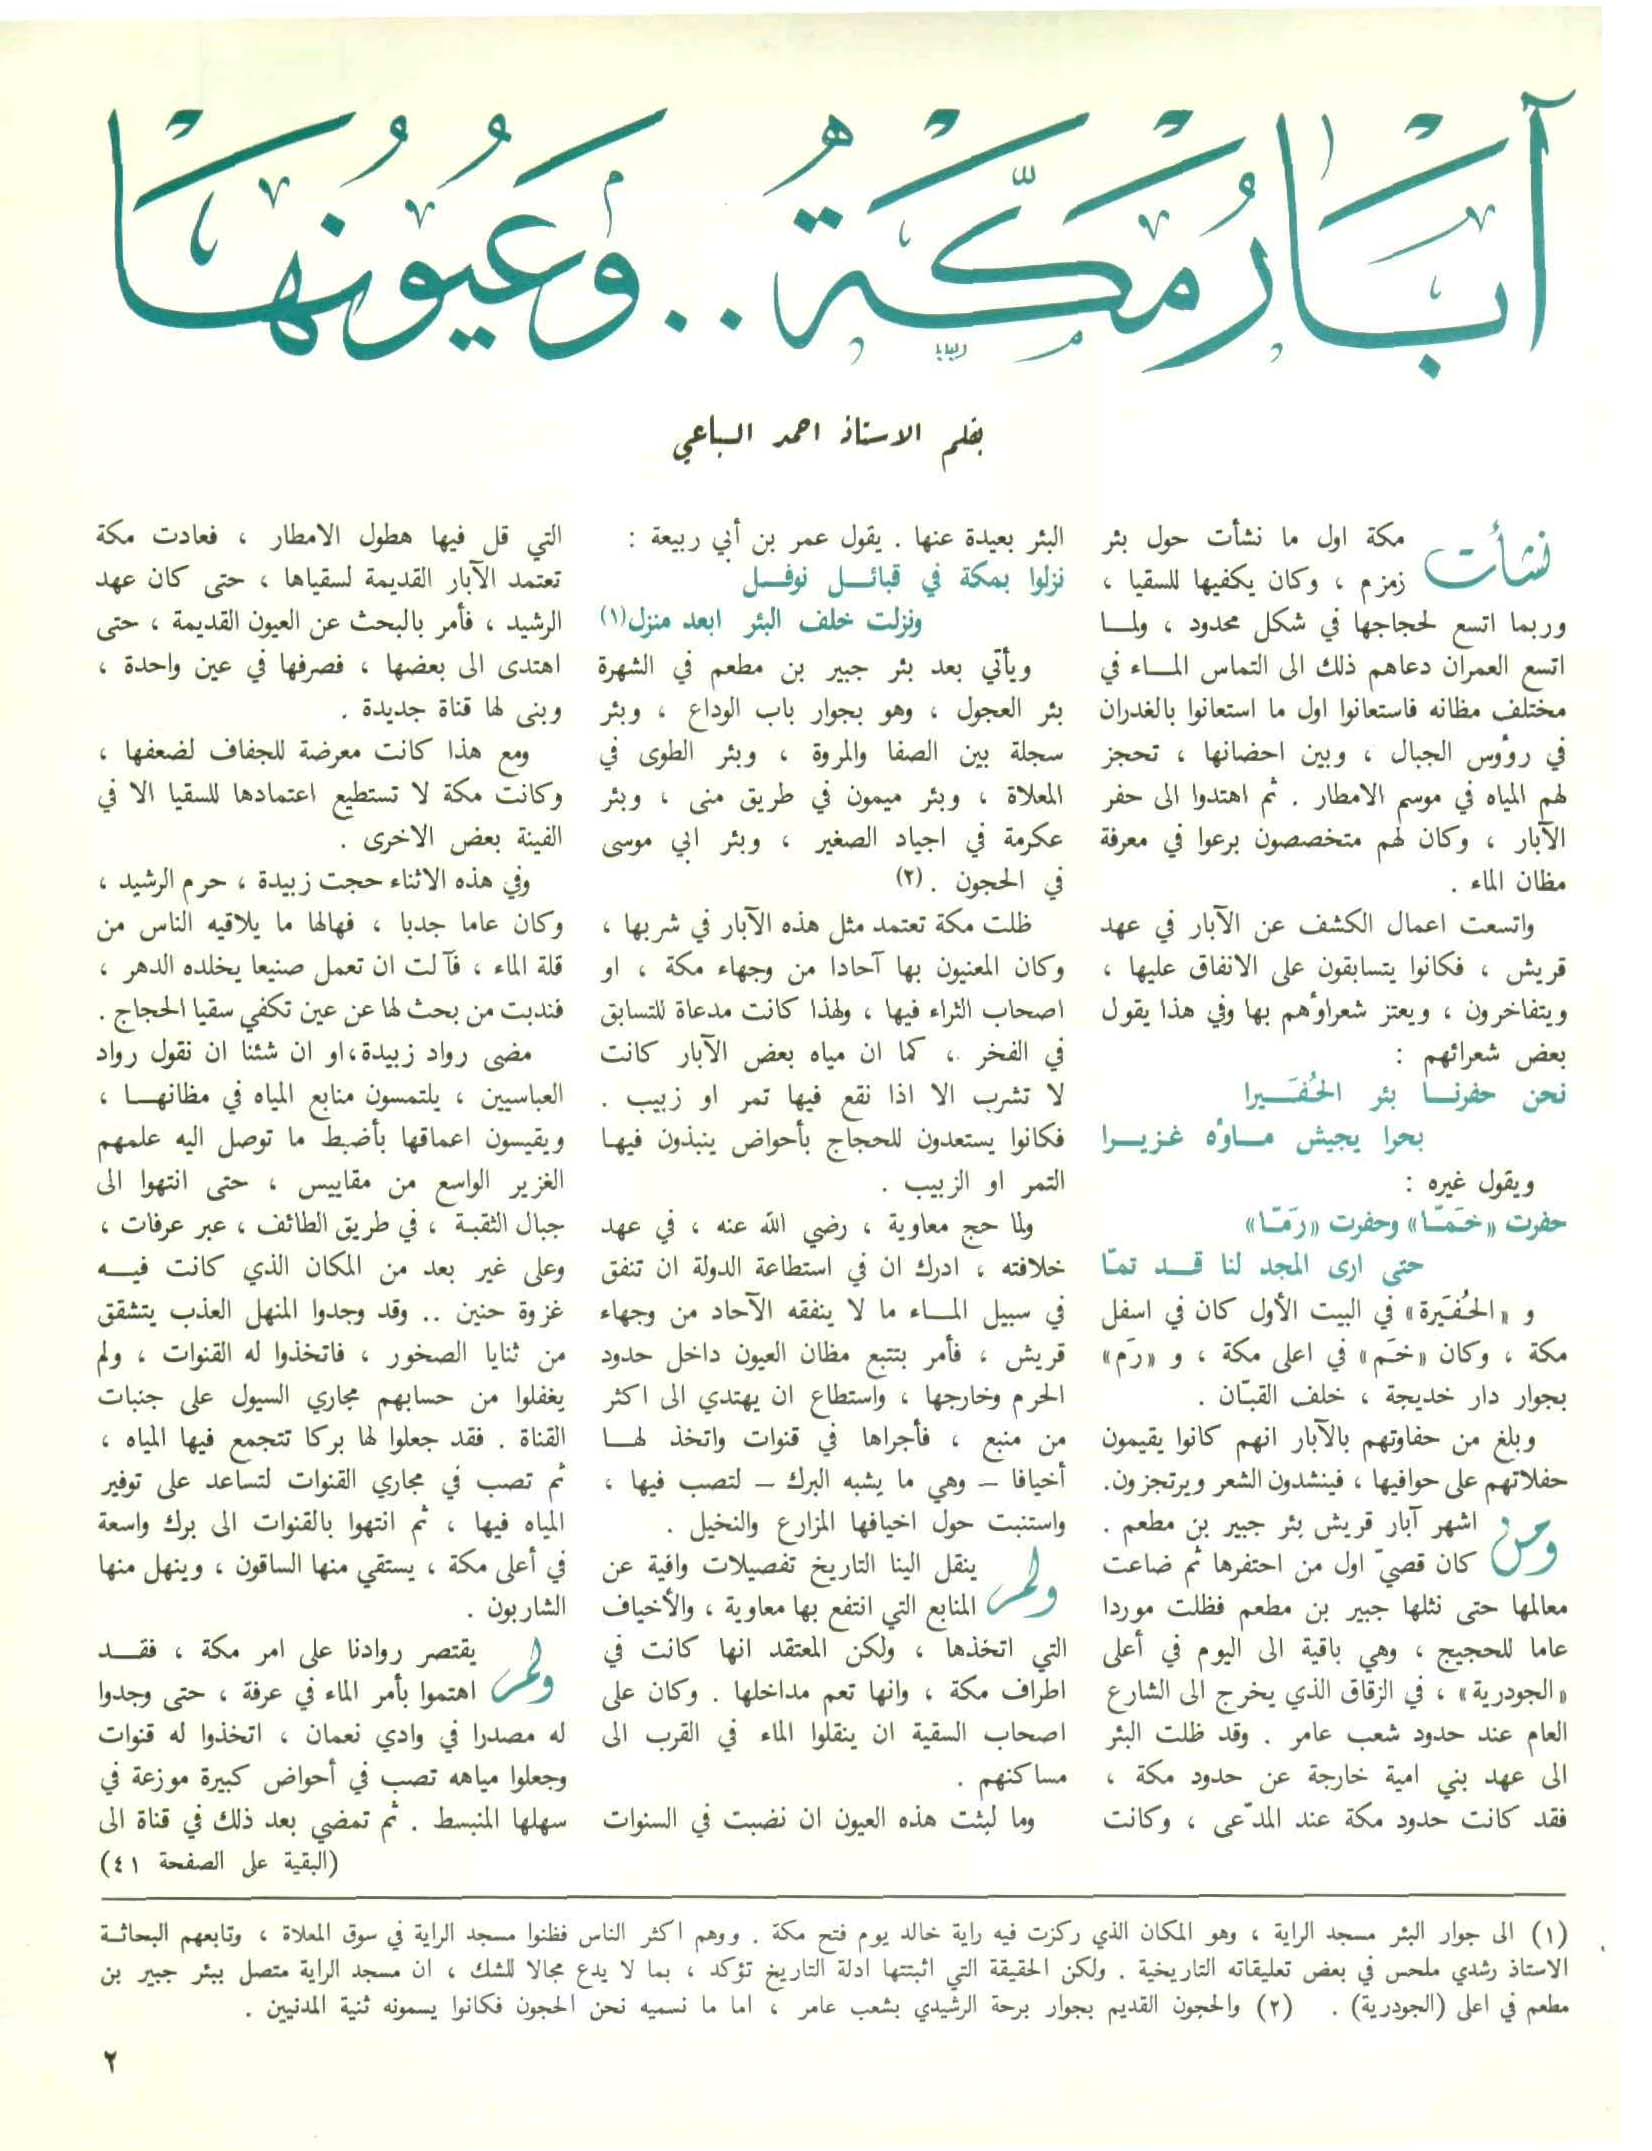 آبَارُ مَكَّةَ .. وَعُيُونُهَا
بقلم الاستاذ احمد السباعي
نشأت مكة اول ما نشأت حول بئر
زمزم ، وكان يكفيها للسقيا ،
وربما اتسع لحجاجها في شكل محدود ، ولمــا
اتسع العمران دعاهم ذلك الى التماس المــاء في
مختلف مظانه فاستعانوا اول ما استعانوا بالغدران
في رؤوس الجبال ، وبين احضانها ، تحجز
لهم المياه في موسم الامطار . ثم اهتدوا الى حفر
الآبار ، وكان لهم متخصصون برعوا في معرفة
مظان الماء .
واتسعت اعمال الكشف عن الآبار في عهد
قريش ، فكانوا يتسابقون على الانفاق عليها ،
ويتفاخرون ، ويعتز شعراؤهم بها وفي هذا يقول
بعض شعرائهم :
نحن حفرنــا بئر الحُـفَــيرا
بحرا يجيش مــاؤه غـزيــرا
ويقول غيره :
حفرت «خَمّـا» وحفرت «رَمّـا»
حتى ارى المجد لنا قــد تمّا
و «الحُـفَيرة» في البيت الأول كان في اسفل
مكة ، وكان «خَم» في اعلى مكة ، و «رَم»
بجوار دار خديجة ، خلف القبّان .
وبلغ من حفاوتهم بالآبار انهم كانوا يقيمون
حفلاتهم على حوافيها ، فينشدون الشعر ويرتجزون.
ومن اشهر آبار قريش بئر جبير بن مطعم .
كان قصيّ اول من احتفرها ثم ضاعت
معالمها حتى نثلها جبير بن مطعم فظلت موردا
عاما للحجيج ، وهي باقية الى اليوم في أعلى
«الجودرية» ، في الزقاق الذي يخرج الى الشارع
العام عند حدود شعب عامر . وقد ظلت البئر
الى عهد بني امية خارجة عن حدود مكة ،
فقد كانت حدود مكة عند المدّعى ، وكانت
البئر بعيدة عنها . يقول عمر بن أبي ربيعة :
نزلوا بمكة في قبائــل نوفــل
ونزلت خلف البئر ابعد منزل(١)
ويأتي بعد بئر جبير بن مطعم في الشهرة
بئر العجول ، وهو بجوار باب الوداع ، وبئر
سجلة بين الصفا والمروة ، وبئر الطوى في
المعلاة ، وبئر ميمون في طريق منى ، وبئر
عكرمة في اجياد الصغير ، وبئر ابي موسى
في الحجون . (٢)
ظلت مكة تعتمد مثل هذه الآبار في شربها ،
وكان المعنيون بها آحادا من وجهاء مكة ، او
اصحاب الثراء فيها ، ولهذا كانت مدعاة للتسابق
في الفخر ، كما ان مياه بعض الآبار كانت
لا تشرب الا اذا نقع فيها تمر او زبيب .
فكانوا يستعدون للحجاج بأحواض ينبذون فيهـا
التمر او الزبيب .
ولما حج معاوية ، رضي الله عنه ، في عهد
خلافته ، ادرك ان في استطاعة الدولة ان تنفق
في سبيل المــاء ما لا ينفقه الآحاد من وجهاء
قريش ، فأمر بتتبع مظان العيون داخل حدود
الحرم وخارجها ، واستطاع ان يهتدي الى اكثر
من منبع ، فأجراها في قنوات واتخذ لهــا
أخيافا - وهي ما يشبه البرك - لتصب فيها ،
واستنبت حول اخيافها المزارع والنخيل .
ولم ينقل الينا التاريخ تفصيلات وافية عن
المنابع التي انتفع بها معاوية ، والأخياف
التي اتخذها ، ولكن المعتقد انها كانت في
اطراف مكة ، وانها تعم مداخلها . وكان على
اصحاب السقية ان ينقلوا الماء في القرب الى
مساكنهم .
وما لبثت هذه العيون ان نضبت في السنوات
التي قل فيها هطول الامطار ، فعادت مكة
تعتمد الآبار القديمة لسقياها ، حتى كان عهد
الرشيد ، فأمر بالبحث عن العيون القديمة ، حتى
اهتدى الى بعضها ، فصرفها في عين واحدة ،
وبنى لها قناة جديدة .
ومع هذا كانت معرضة للجفاف لضعفها ،
وكانت مكة لا تستطيع اعتمادها للسقيا الا في
الفينة بعض الاخرى .
وفي هذه الاثناء حجت زبيدة ، حرم الرشيد ،
وكان عاما جدبا ، فهالها ما يلاقيه الناس من
قلة الماء ، فآلت ان تعمل صنيعا يخلده الدهر ،
فندبت من بحث لها عن عين تكفي سقيا الحجاج .
مضى رواد زبيدة،او ان شئنا ان نقول رواد
العباسيين ، يلتمسون منابع المياه في مظانهــا ،
ويقيسون اعماقها بأضبط ما توصل اليه علمهم
الغزير الواسع من مقاييس ، حتى انتهوا الى
جبال الثقبة ، في طريق الطائف ، عبر عرفات ،
وعلى غير بعد من المكان الذي كانت فيــه
غزوة حنين .. وقد وجدوا المنهل العذب يتشقق
من ثنايا الصخور ، فاتخذوا له القنوات ، ولم
يغفلوا من حسابهم مجاري السيول على جنبات
القناة . فقد جعلوا لها بركا تتجمع فيها المياه ،
ثم تصب في مجاري القنوات لتساعد على توفير
المياه فيها ، ثم انتهوا بالقنوات الى برك واسعة
في أعلى مكة ، يستقي منها الساقون ، وينهل منها
الشاربون .
ولم يقتصر روادنا على امر مكة ، فقــد
اهتموا بأمر الماء في عرفة ، حتى وجدوا
له مصدرا في وادي نعمان ، اتخذوا له قنوات
وجعلوا مياهه تصب في أحواض كبيرة موزعة في
سهلها المنبسط . ثم تمضي بعد ذلك في قناة الى
(البقية على الصفحة ٤١)
(١) الى جوار البئر مسجد الراية ، وهو المكان الذي ركزت فيه راية خالد يوم فتح مكة . ووهم اكثر الناس فظنوا مسجد الراية في سوق المعلاة ، وتابعهم البحاثــة
الاستاذ رشدي ملحس في بعض تعليقاته التاريخية . ولكن الحقيقة التي اثبتتها ادلة التاريخ تؤكد ، بما لا يدع مجالا للشك ، ان مسجد الراية متصل ببئر جبير بن
مطعم في اعلى (الجودرية) . (٢) والحجون القديم بجوار برحة الرشيدي بشعب عامر ، اما ما نسميه نحن الحجون فكانوا يسمونه ثنية المدنيين .
٢